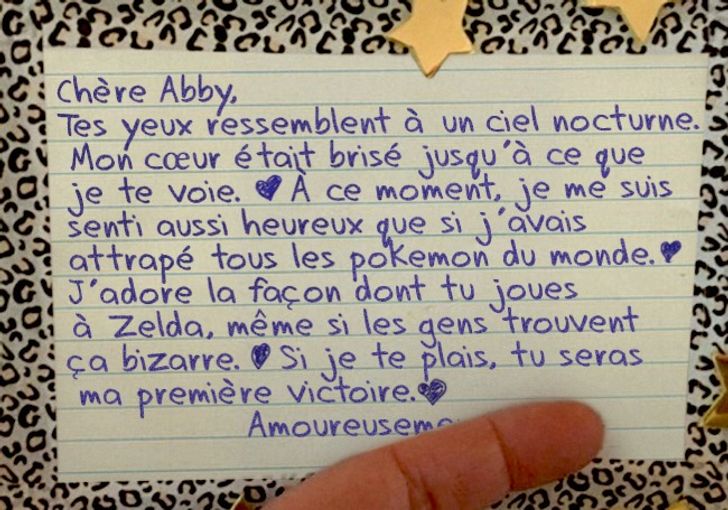 Chère Abby,
Tes yeux ressemblent à un ciel nocturne.
Mon cœur était brisé jusqu'à ce que
je te voie. ♥ À ce moment, je me suis
senti aussi heureux que si j'avais
attrapé tous les pokemon du monde. ♥
J'adore la façon dont tu joues
à Zelda, même si les gens trouvent
ça bizarre. ♥ Si je te plais, tu seras
ma première victoire. ♥